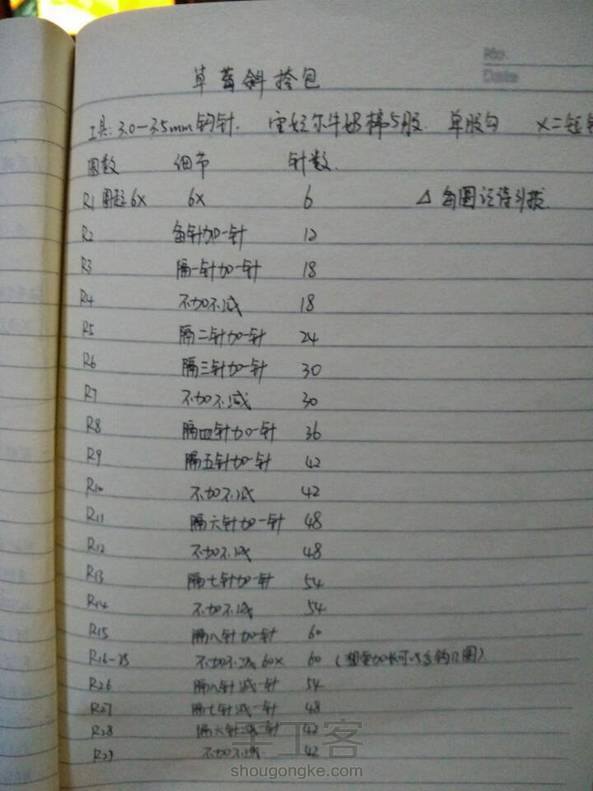 No.
Date
草莓斜挎包
工具: 3.0-3.5mm钩针. 宝妃尔牛奶棉5股. 单股勾 X=短针
圈数 细节 针数.
R1 圈起6X 6X 6 △ 每圈记得引拔
R2 每针加一针 12
R3 隔一针加一针 18
R4 不加不减 18
R5 隔二针加一针 24
R6 隔三针加一针 30
R7 不加不减 30
R8 隔四针加一针 36
R9 隔五针加一针 42
R10 不加不减 42
R11 隔六针加一针 48
R12 不加不减 48
R13 隔七针加一针 54
R14 不加不减 54
R15 隔八针加一针 60
R16-25 不加不减60X 60 (想要加长可以多钩几圈)
R26 隔八针减一针 54
R27 隔七针减一针 48
R28 隔六针减一针 42
R29 不加不减 42
手工客
shougongke.com